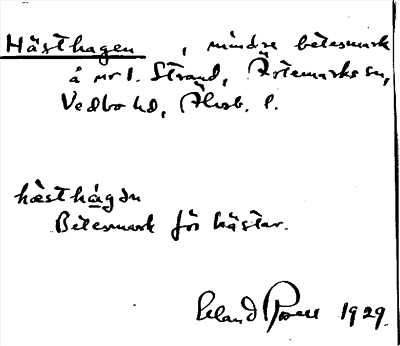 Hästhagen, mindre betesmark
å nr 1. Strand, Ärtemarks sn,
Vedbo hd, Älvsb. l.
hæsthågən
Betesmark för hästar.
Erland Rosell 1929.